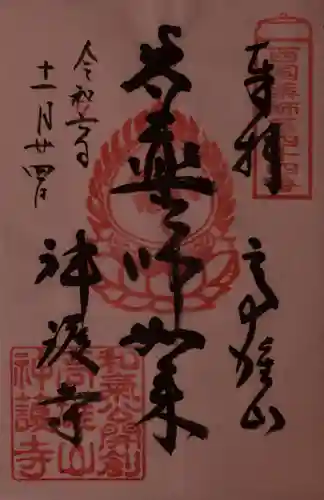 奉拝
高雄山
薬師如来
神護寺
令和六年
十一月廿四日
西国薬師第四十四番
和気公開創
高雄山
神護寺